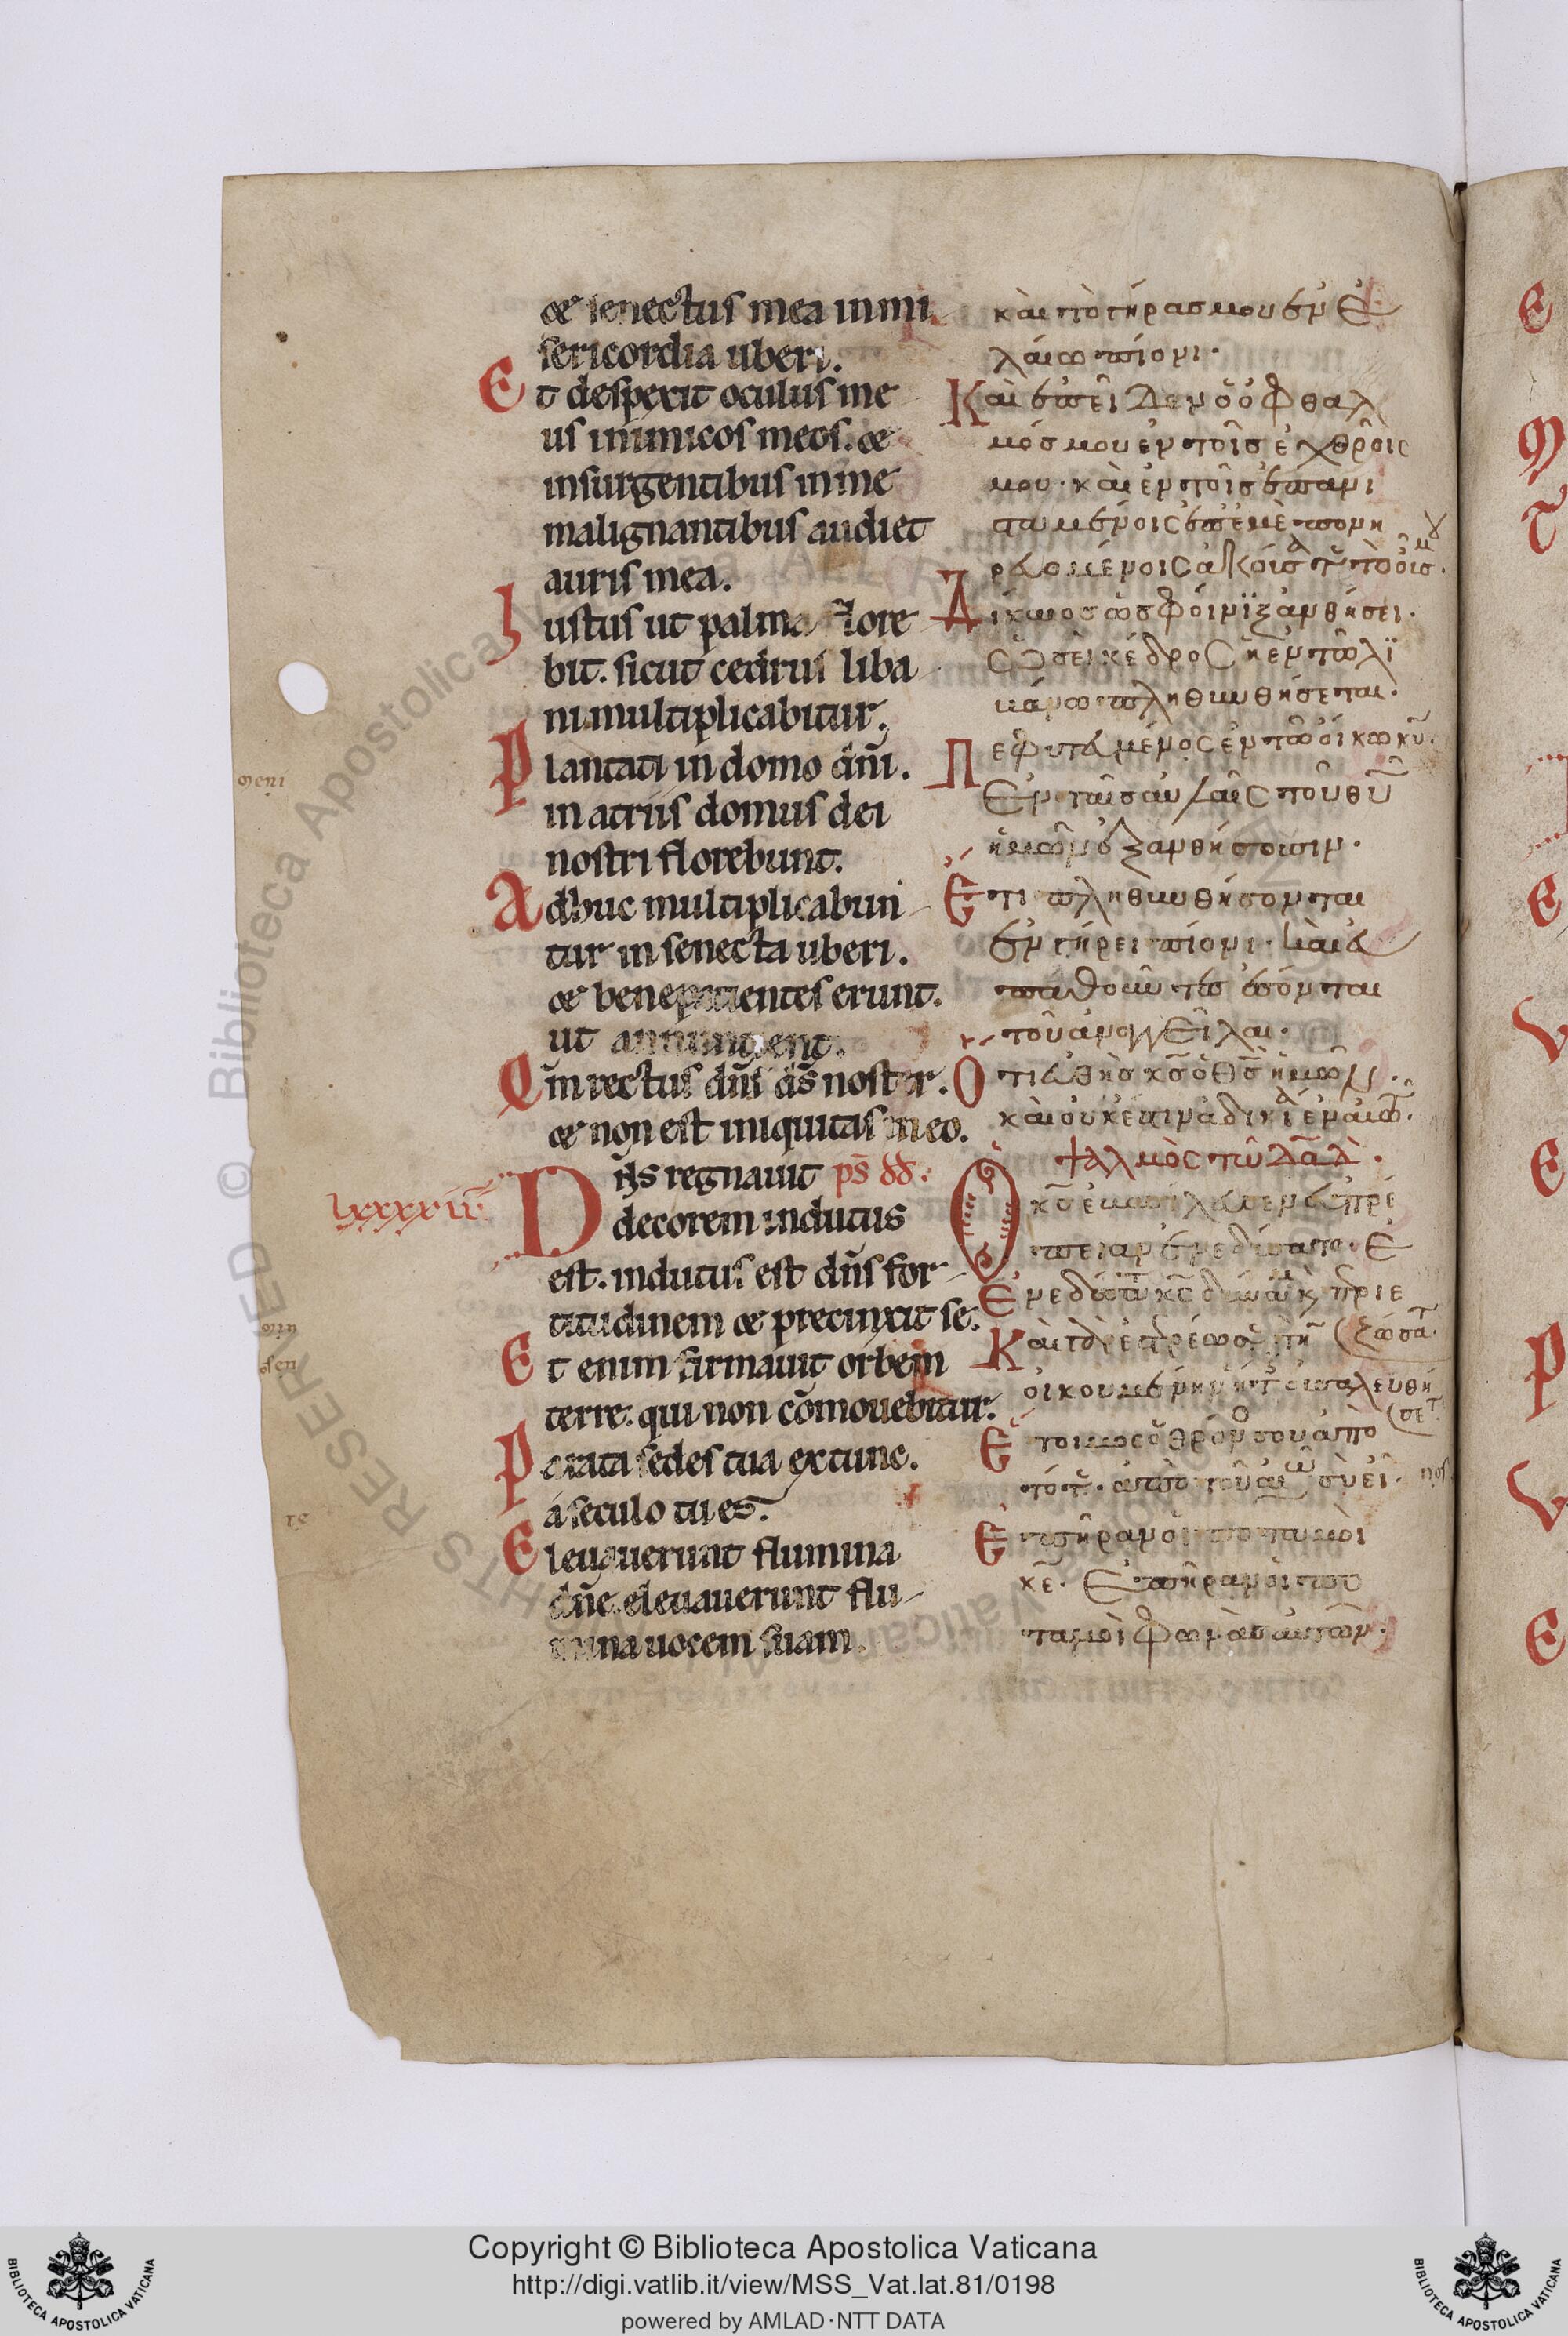 & senectus mea in mi
sericordia uberi.
Et despexit oculus me
us inimicos meos. &
insurgentibus in me
malignantibus audiet
auris mea.
Iustus ut palma flore
bit. sicut cedrus liba
ni multiplicabitur.
Plantati in domo dñi.
in atriis domus dei
nostri florebunt.
Adhuc multiplicabun
tur in senecta uberi.
& bene patientes erunt.
ut annuntient.
Qm̃ rectus dñs ds̃ noster.
& non est iniquitas in eo.
Dñs regnauit ps̃ dd.
lxxxxii
decorem indutus
est. indutus est dñs for
titudinem & precinxit se.
Et enim firmauit orbem
terre. qui non cõmouebitur.
Parata sedes tua ex tunc.
a seculo tu es.
Eleuauerunt flumina
dñe. eleuauerunt flu
mina uocem suam.
καὶ τὸ γήρας μου ἐν ἐ
λαίω πίονι.
Καὶ ἐπεῖδεν ὁ ὀφθαλ
μός μου ἐν τοῖς ἐχθροῖς
μου. καὶ ἐν τοῖς ἐπανι
σταμένοις ἐπ ἐμὲ πονη
Δίκαιος ὡς φοίνιξ ἀνθήσει.
ὡσεὶ κέδρος ἡ ἐν τῶ λι
βάνω πληθυνθήσεται.
Πεφυτευμένος ἐν τῶ οἴκω κυ̃.
Ἐν ταῖς αὐλαῖς τοῦ θυ̃
ἡμῶν ἐξανθήσουσιν.
Ἔτι πληθυνθήσονται
ἐν γήρει πίονι. καὶ εὐ
παθοῦντες ἔσονται
τοῦ ἀναγγεῖλαι.
Ὅτι εὐθὴς κς̃ ὁ θς̃ ἡμῶν.
καὶ οὐκ ἔστιν ἀδικία ἐν αὐτῶ.
ψαλμὸς τῶ δαδ̃.
Ὁ κς̃ ἐβασίλευσεν εὐπρέ
πειαν ἐνεδύσατο. Ἐ
οἰκουμένην ἥτις οὐ σαλευθή
σετ
Ἕτοιμος ὁ θρόνος σου ἀπὸ
τότε. ἀπὸ τοῦ αἰῶνος σὺ εἶ.
Ἐπῆραν οἱ ποταμοὶ
κε̃. Ἐπῆραν οἱ πο
ταμοὶ φωνὰς αὐτῶν.
Copyright © Biblioteca Apostolica Vaticana
http://digi.vatlib.it/view/MSS_Vat.lat.81/0198
powered by AMLAD·NTT DATA
BIBLIOTECA APOSTOLICA VATICANA
BIBLIOTECA APOSTOLICA VATICANA